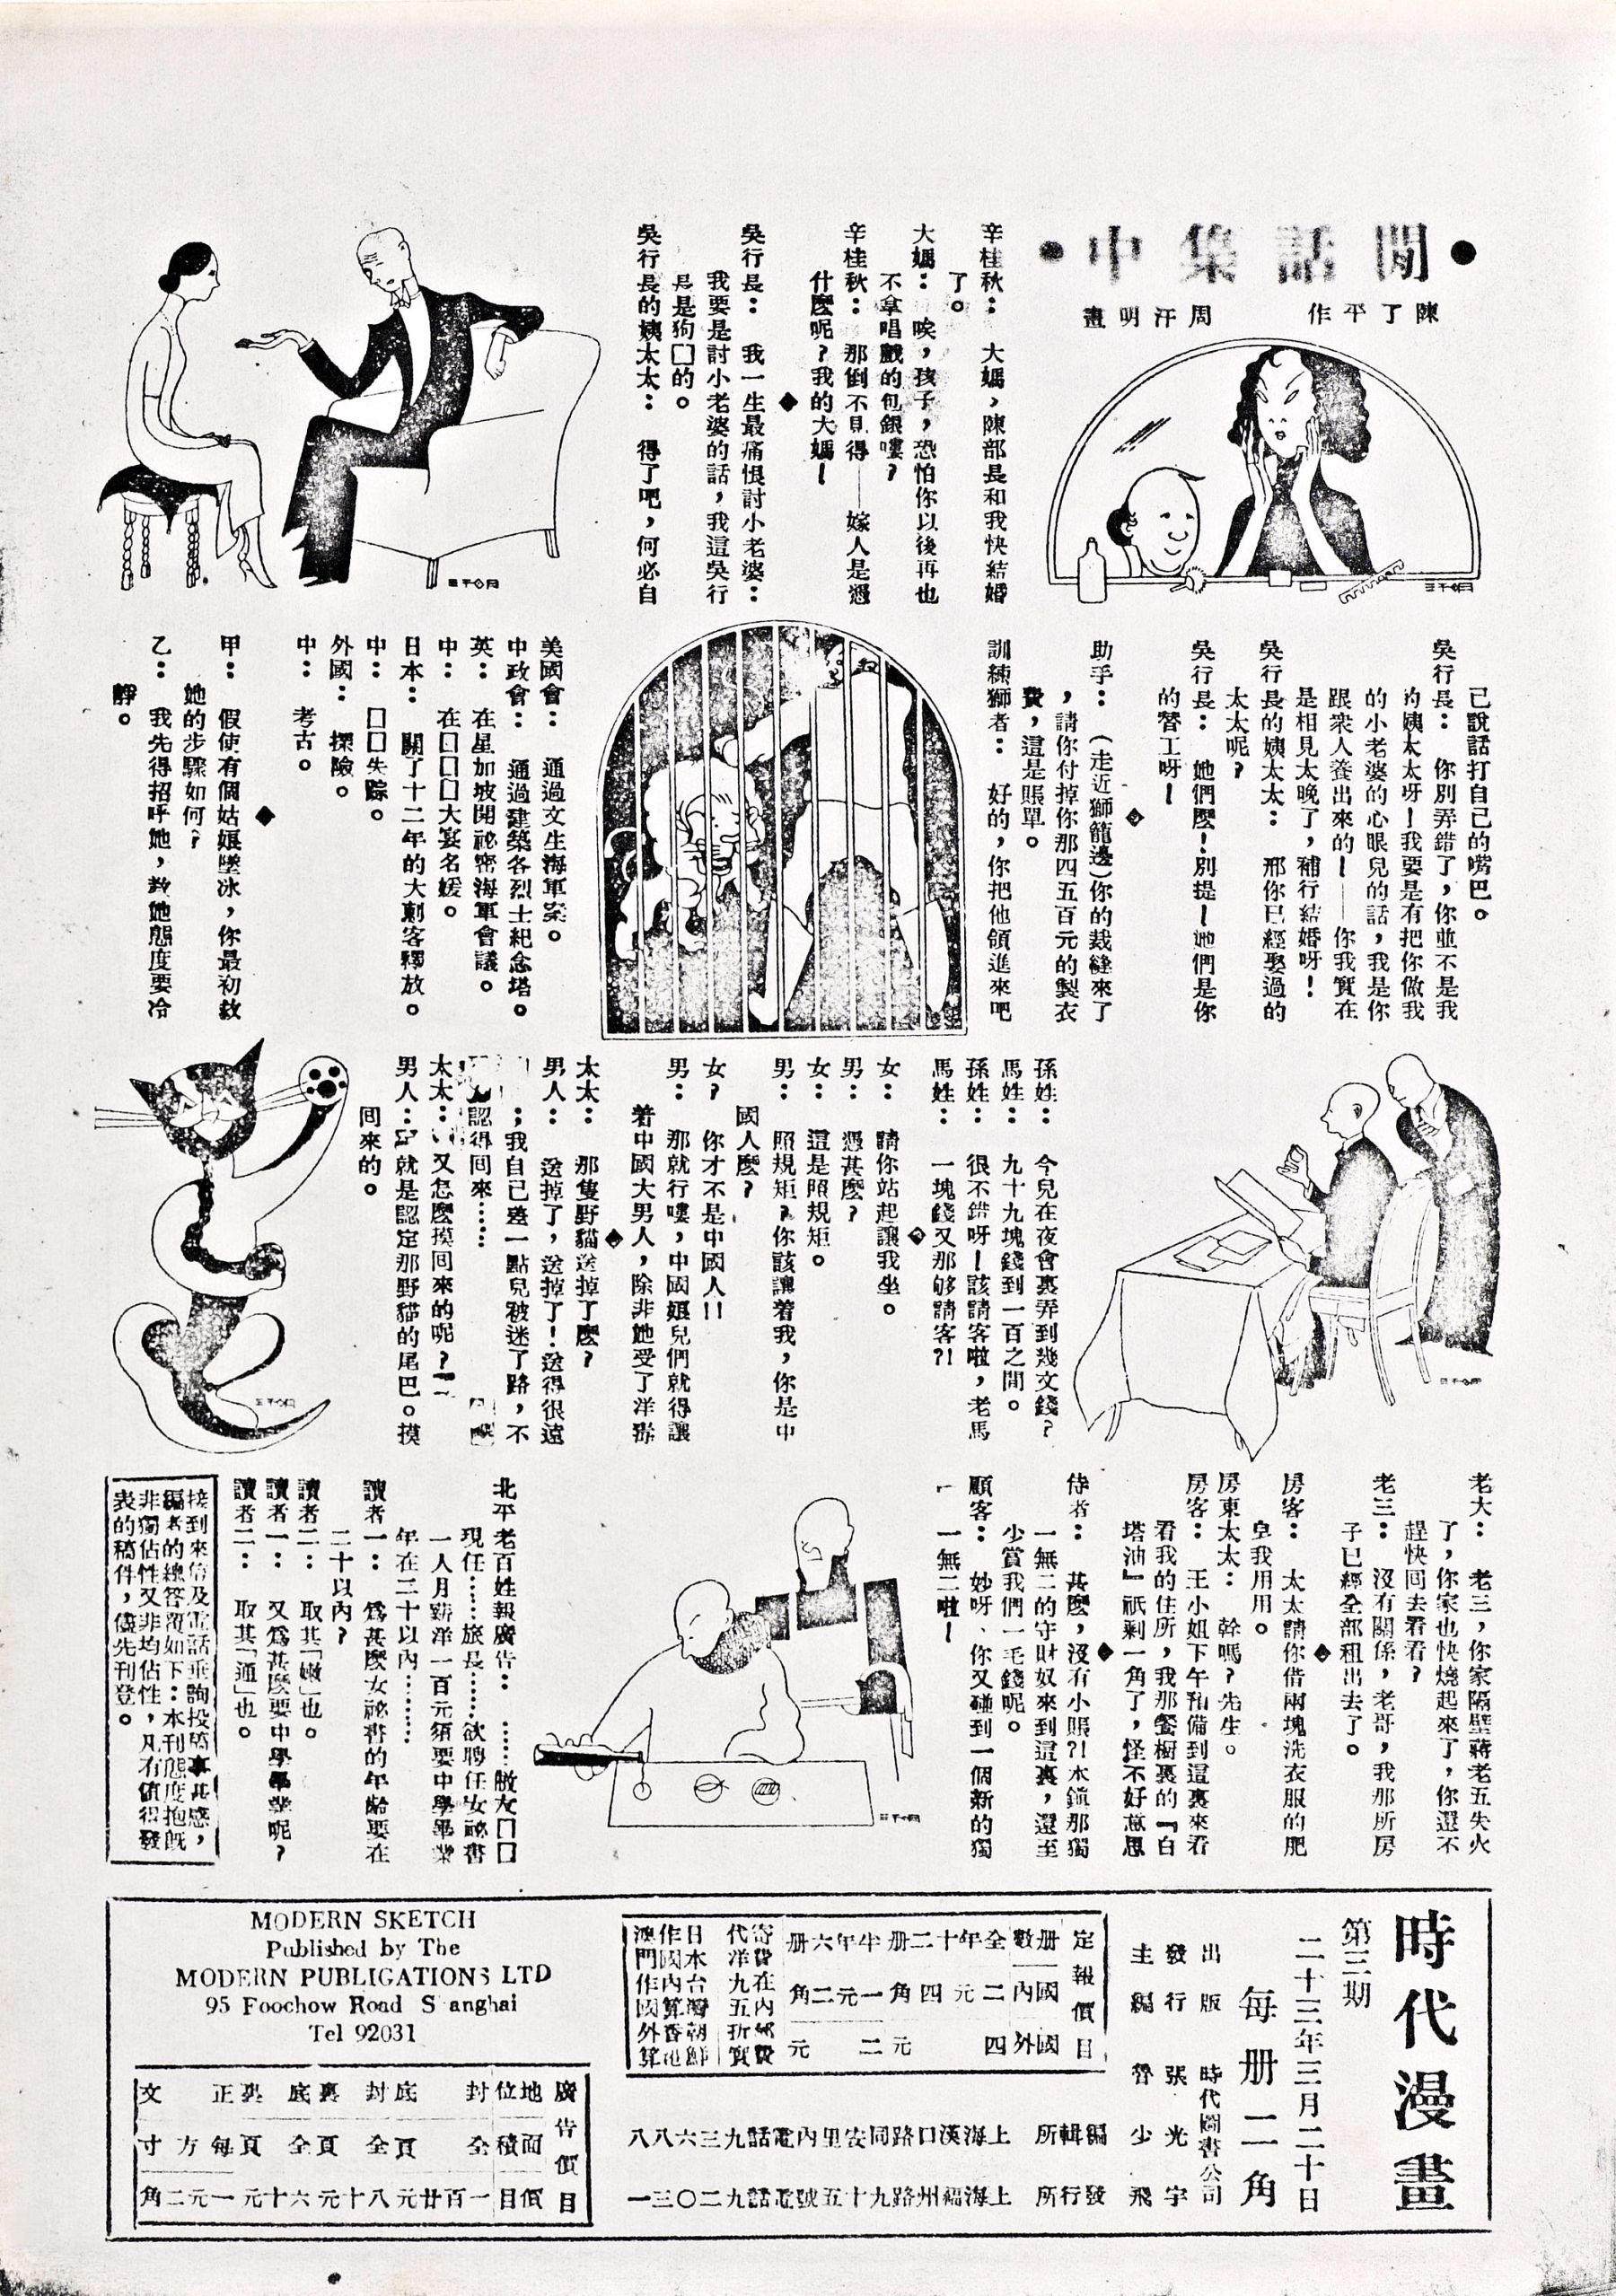 閒話集中
陳了平作 周汗明畫
辛桂秋： 大媽，陳部長和我快結婚
了。
大媽： 唉，孩子，恐怕你以後再也
不拿唱戲的包銀嘍？
辛桂秋： 那倒不見得——嫁人是為
什麼呢？我的大媽！
◆
吳行長： 我一生最痛恨討小老婆：
我要是討小老婆的話，我這吳行
長是狗□的。
吳行長的姨太太： 得了吧，何必自
己說話打自己的嘴巴。
吳行長： 你別弄錯了，你並不是我
的姨太太呀！我要是有把你做我
的小老婆的心眼兒的話，我是你
跟衆人養出來的！——你我實在
是相見太晚了，補行結婚呀！
吳行長的姨太太： 那你已經娶過的
太太呢？
吳行長： 她們麼！別提！她們是你
的替工呀！
◆
助手：（走近獅籠邊）你的裁縫來了
，請你付掉你那四五百元的製衣
費，這是賬單。
訓練獅者： 好的，你把他領進來吧
美國會： 通過文生海軍案。
中政會： 通過建築各烈士紀念塔。
英： 在星加坡開祕密海軍會議。
中： 在□□□□大宴名媛。
日本： 關了十二年的大刺客釋放。
中： □□失踪。
外國： 探險。
中： 考古。
◆
甲： 假使有個姑娘墜冰，你最初救
她的步驟如何？
乙： 我先得招呼她，教她態度要冷
靜。
孫姓： 今兒在夜會裏弄到幾文錢？
馬姓： 九十九塊錢到一百之間。
孫姓： 很不錯呀！該請客啦，老馬
馬姓： 一塊錢又那够請客?!
◆
女： 請你站起讓我坐。
男： 憑甚麼？
女： 這是照規矩。
男： 照規矩？你該讓着我，你是中
國人麼？
女？ 你才不是中國人!!
男： 那就行嘍，中國娘兒們就得讓
着中國大男人，除非她受了洋
◆
太太： 那隻野貓送掉了麼？
男人： 送掉了，送掉了！送得很遠
；我自己差一點兒被迷了路，不
認得回來……
太太： 又怎麼摸回來的呢？
男人： 就是認定那野貓的尾巴。摸
回來的。
老大： 老三，你家隔壁蔣老五失火
了，你家也快燒起來了，你還不
趕快回去看看？
老三： 沒有關係，老哥，我那所房
子已經全部租出去了。
◆
房客： 太太請你借兩塊洗衣服的肥
皂我用用。
房東太太： 幹嗎？先生。
房客： 王小姐下午預備到這裏來看
看我的住所，我那餐櫥裏的『白
塔油』祇剩一角了，怪不好意思
◆
侍者： 甚麼，沒有小賬?!本鎮那獨
一無二的守財奴來到這裏，還至
少賞我們一毛錢呢。
顧客： 妙呀、你又碰到一個新的獨
一無二啦！
北平老百姓報廣告： ……敝友□□
現任……旅長……欲聘任女祕書
一人月薪洋一百元須要中學畢業
年在二十以內……
讀者一： 為甚麼女祕書的年齡要在
二十以內？
讀者二： 取其「嫩」也。
讀者一： 又為甚麼要中學畢業呢？
讀者二： 取其「通」也。
接到來信及電話垂詢投稿事甚感，
編者的總答覆如下：本刊態度抱旣
非獨佔性又非均佔性，凡有値得發
表的稿件，儘先刊登。
時代漫畫
第三期
二十三年三月二十日
每册二角
出版 時代圖書公司
發行 張光宇
主編 魯少飛
定報價目
册數 國內 國外
全年十二册 二元四角 四元
半年六册 一元二角 二元
寄費在內郵費
代洋九五折實
日本台灣朝鮮
作國內算香港
澳門作國外算
編輯所 上海漢口路同安里內電話九三六八八
發行所 上海福州路九十五號電話九二〇三一
MODERN SKETCH
Published by The
MODERN PUBLICATIONS LTD
95 Foochow Road S anghai
Tel 92031
廣告價目
地位 面積 價目
封 全 一百廿元
底封 全頁 八十元
底裏 全頁 六十元
正裏 每頁 一元
文 方寸 二角